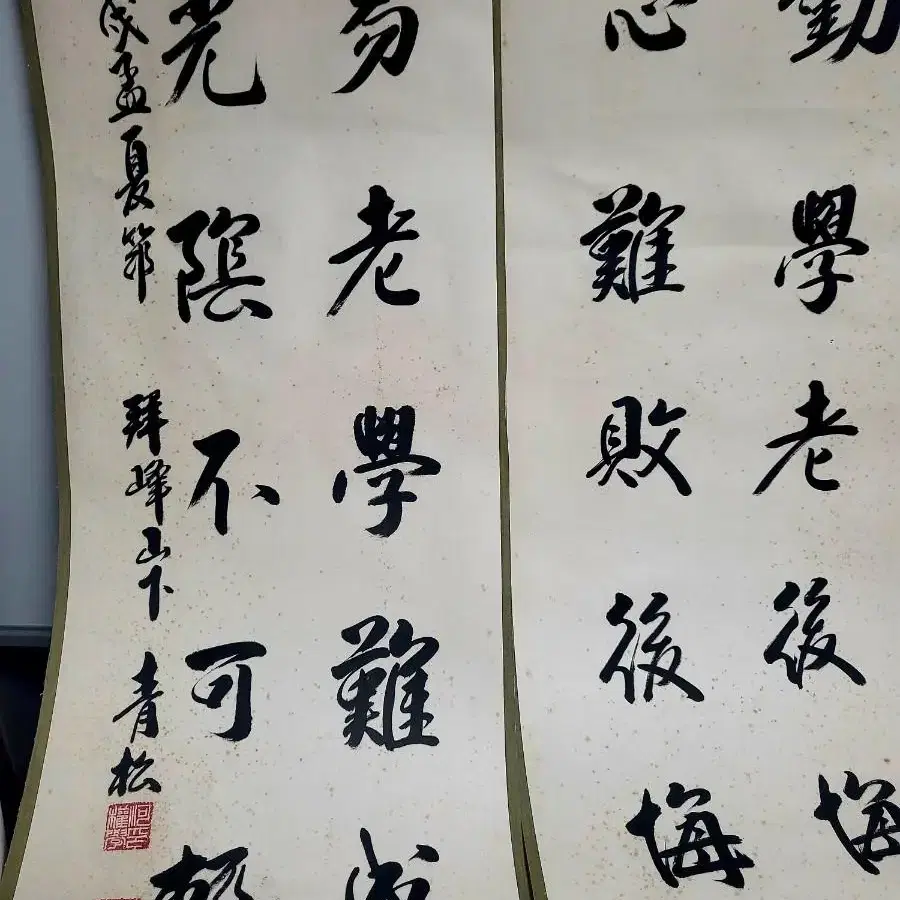 勤學老後悔
思難敗後悔
易老學難成
光陰不可輕
戌孟夏節 拜峰山下 青松